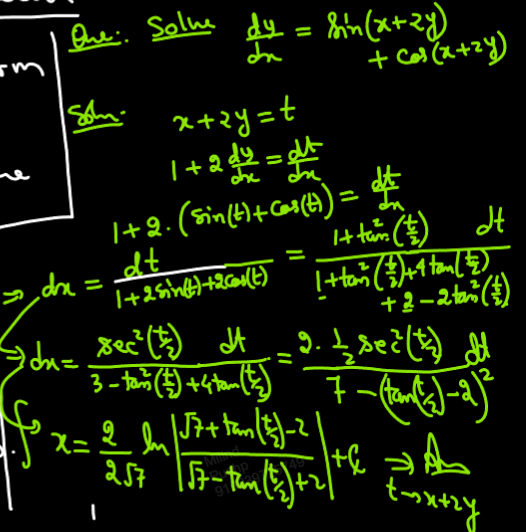 orm
ne
Que:. Solve dy/dx = sin(x+2y)
+ cos(x+2y)
Soln:
x+2y = t
1 + 2 dy/dx = dt/dx
1 + 2 · (sin(t) + cos(t)) = dt/dx
⇒ dx = dt / (1+2sin(t)+2cos(t)) = (1+tan²(t/2)) dt / (1+tan²(t/2)+4tan(t/2) + 2 - 2tan²(t/2))
⇒ dx = sec²(t/2) dt / (3 - tan²(t/2) + 4tan(t/2)) = 2 · 1/2 sec²(t/2) dt / (7 - (tan(t/2) - 2)²)
∫ x = 2/(2√7) ln |(√7 + tan(t/2) - 2) / (√7 - tan(t/2) + 2)| + C ⇒ Ans
t → x+2y